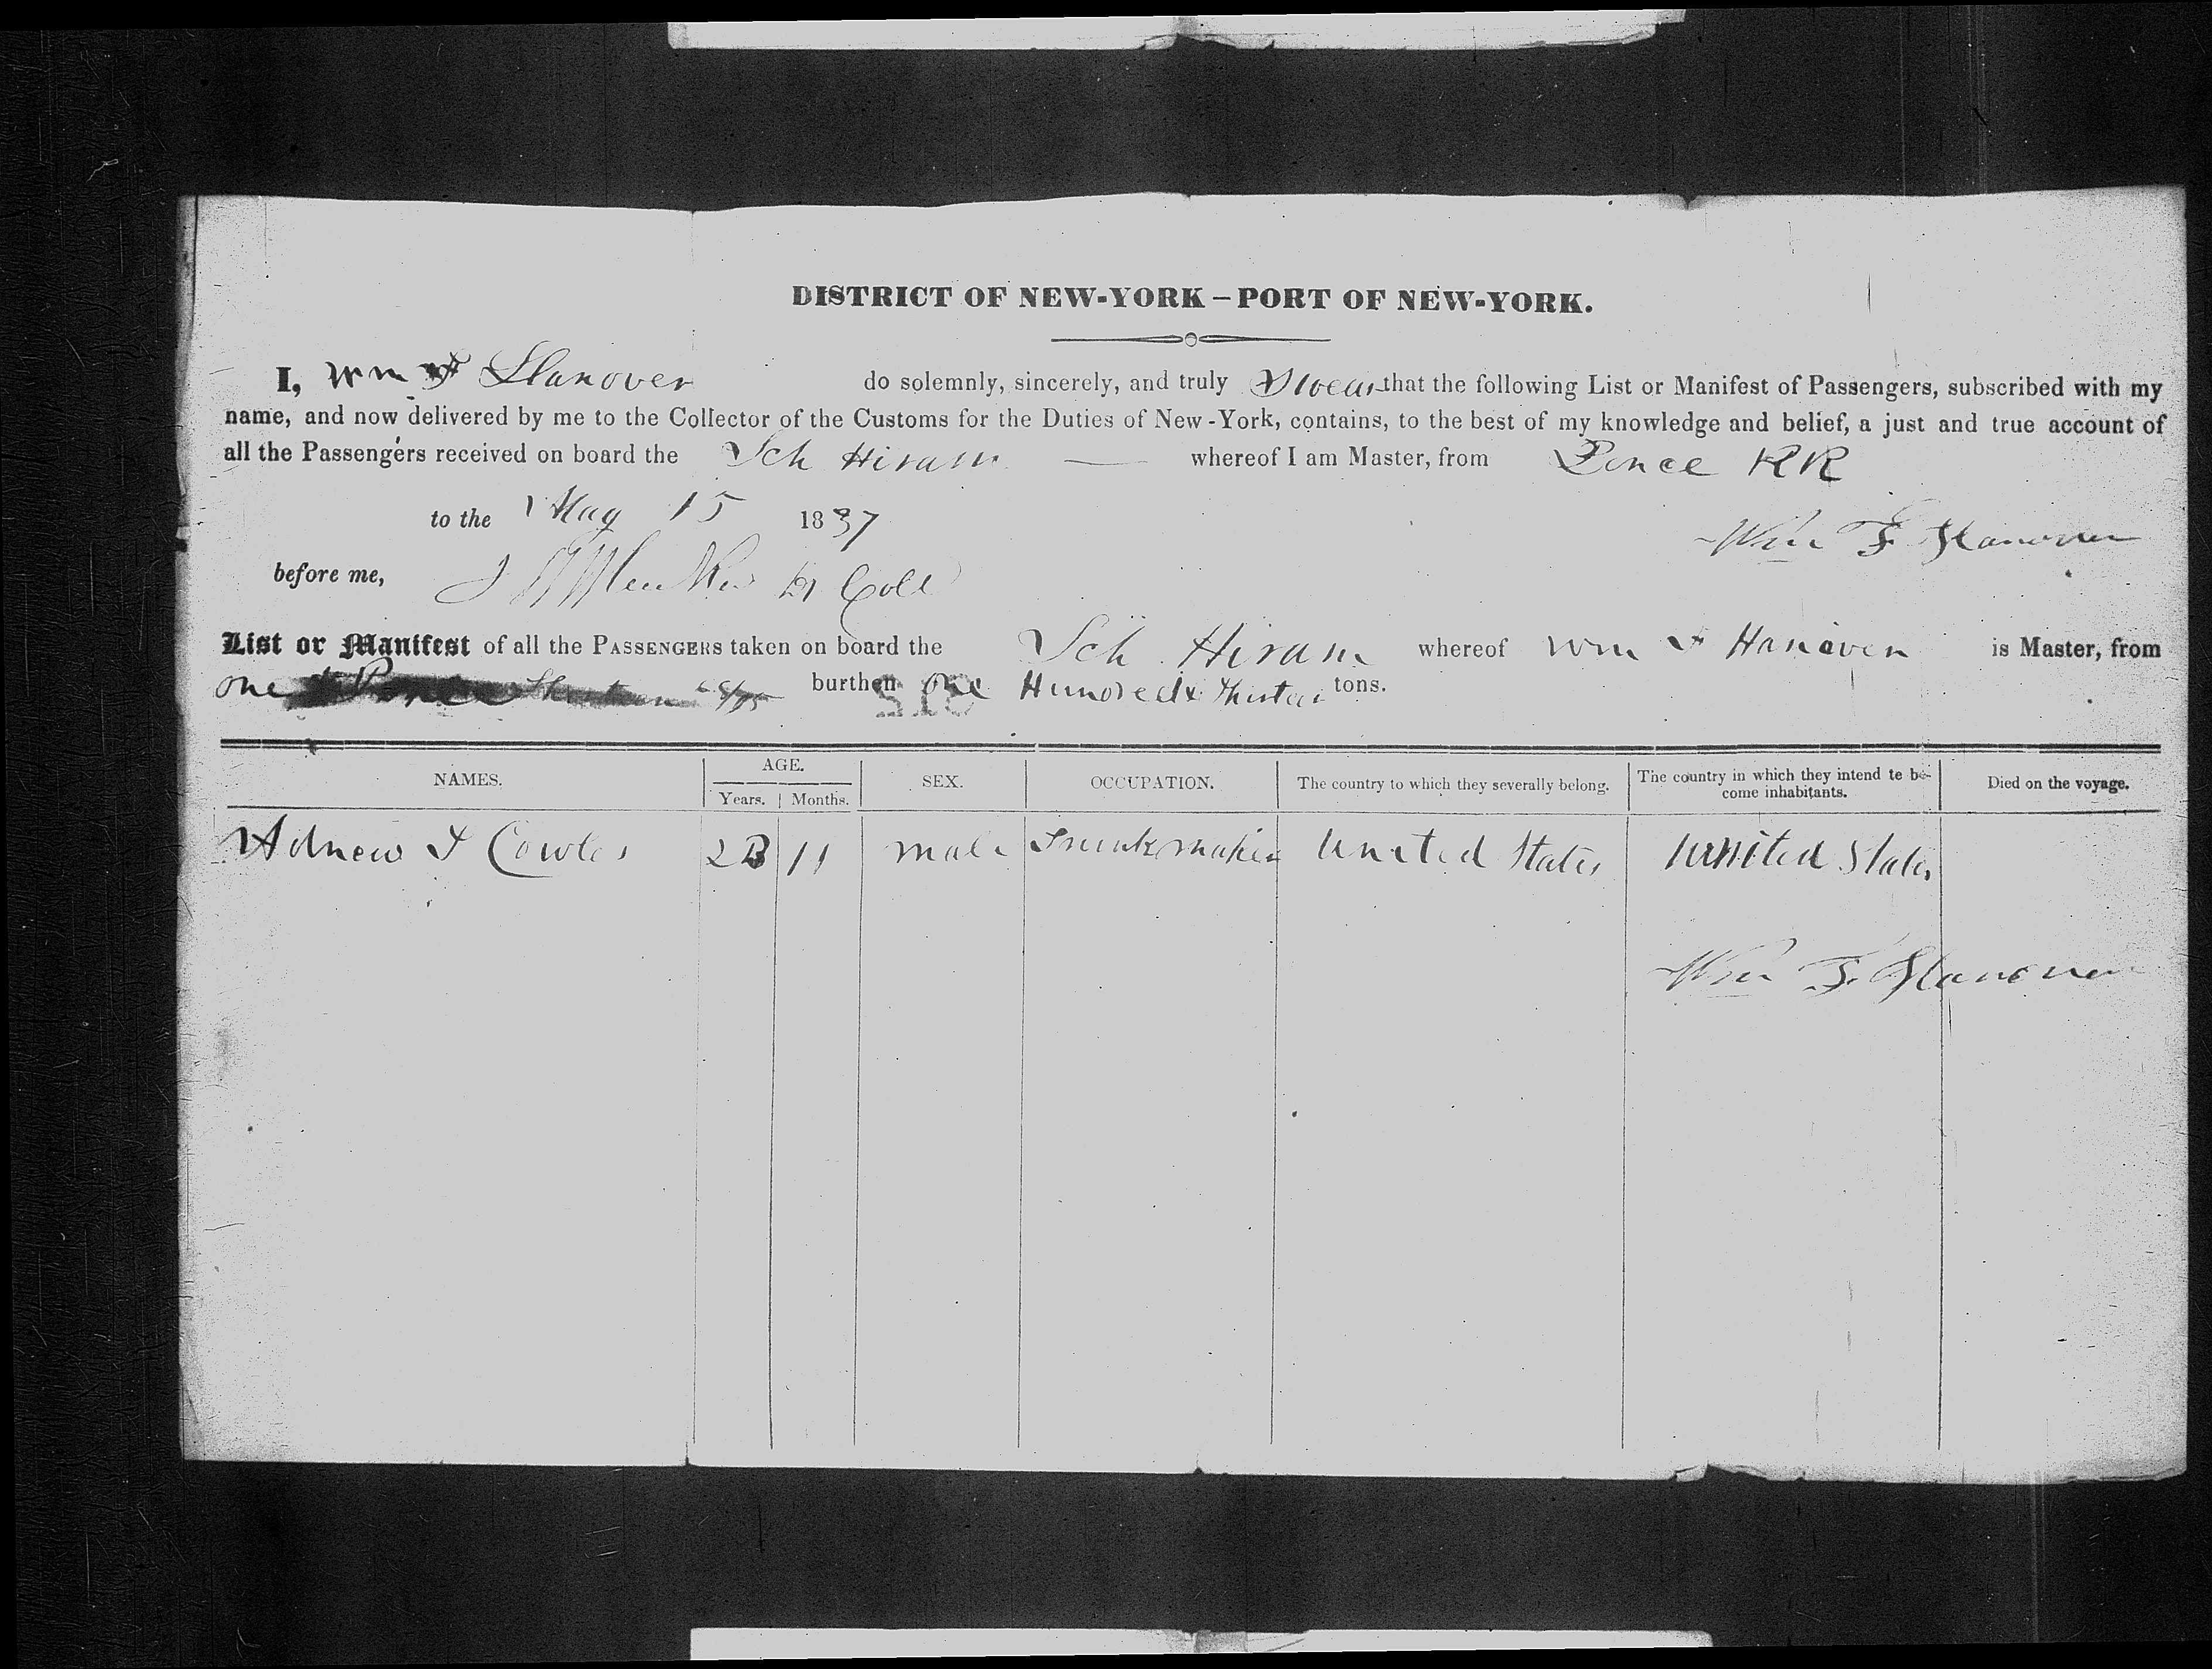 DISTRICT OF NEW-YORK – PORT OF NEW-YORK.
I, Wm F Hanover do solemnly, sincerely, and truly Swear that the following List or Manifest of Passengers, subscribed with my
name, and now delivered by me to the Collector of the Customs for the Duties of New-York, contains, to the best of my knowledge and belief, a just and true account of
all the Passengers received on board the Sch Hiram — whereof I am Master, from Ponce
to the May 15 1837
Wm F Hanover
before me, Coll
List or Manifest of all the PASSENGERS taken on board the Sch Hiram whereof Wm F Hanover is Master, from
one burthen One Hundred & tons.
NAMES. AGE. SEX. OCCUPATION. The country to which they severally belong. The country in which they intend te be-
come inhabitants. Died on the voyage.
Years. Months.
Cowles 11 male Trunk maker United States United States
Wm F. Hanover